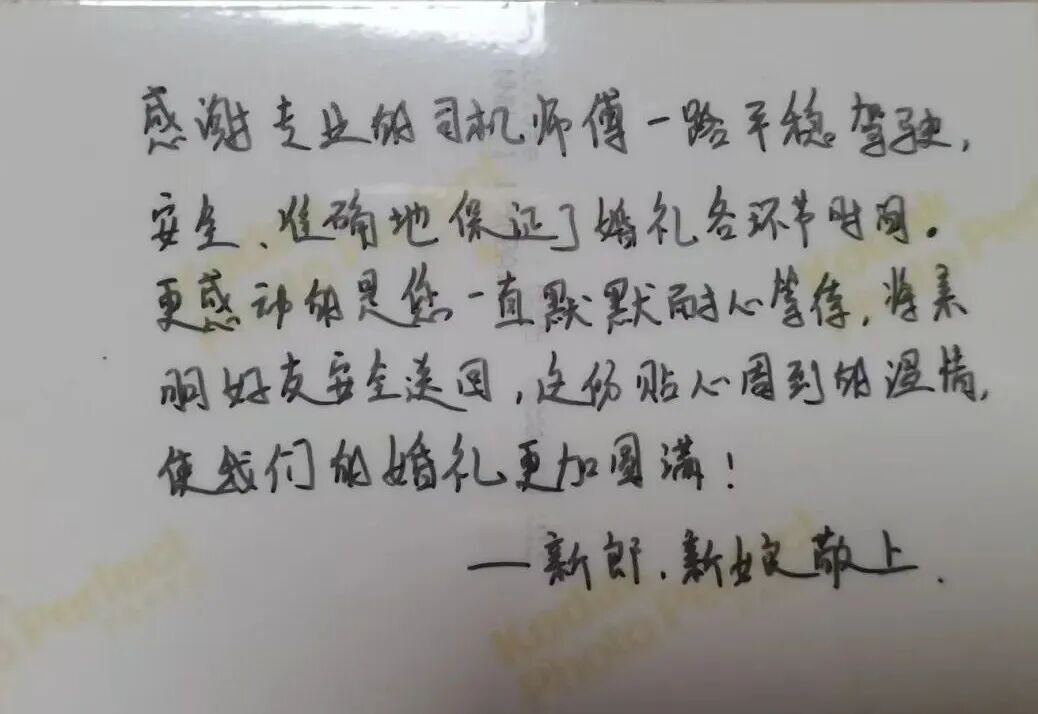 感谢专业的司机师傅一路平稳驾驶，
安全、准确地保证了婚礼各环节时间。
更感动的是您一直默默耐心等待，将亲
朋好友安全送回，这份贴心周到的温情，
使我们的婚礼更加圆满！
—新郎、新娘敬上.
Kodak
Photo Paper